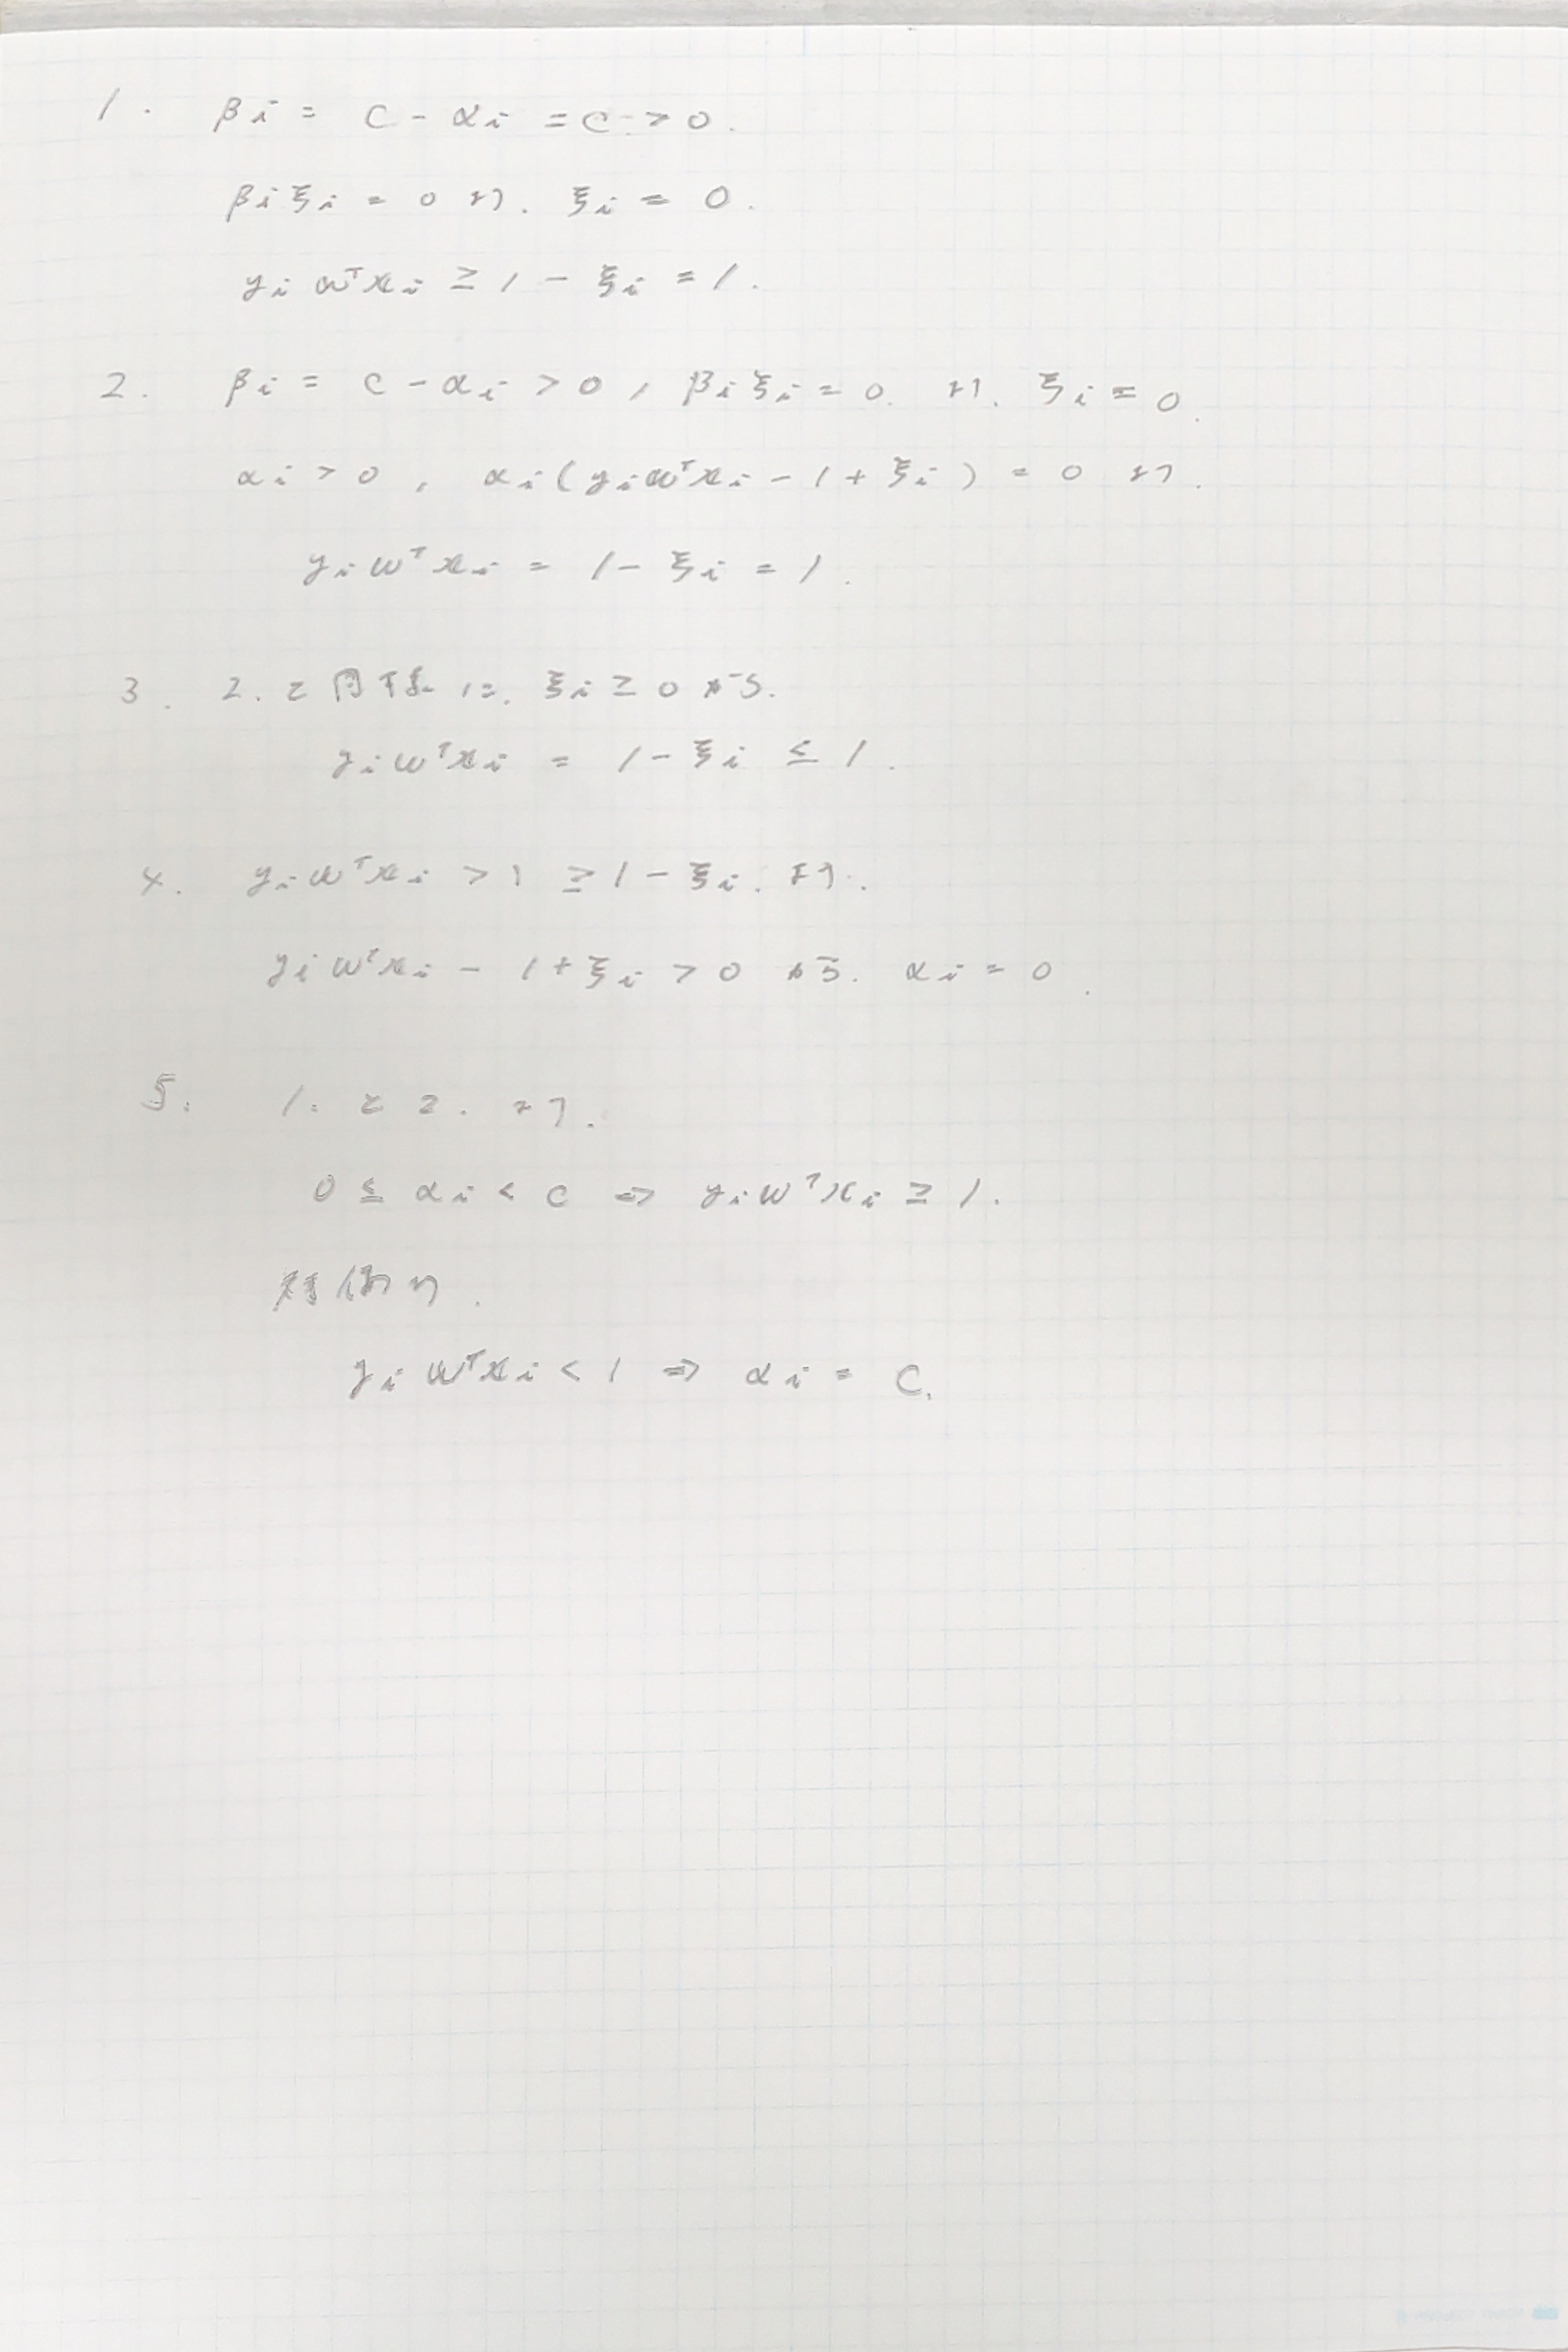 1. βi = C - αi = C > 0.
βiξi = 0 より. ξi = 0.
yi wᵀxi ≥ 1 - ξi = 1.
2. βi = C - αi > 0, βiξi = 0. より. ξi = 0.
αi > 0, αi(yiwᵀxi - 1 + ξi) = 0 より.
yi wᵀxi = 1 - ξi = 1.
3. 2. と同様に. ξi ≥ 0 から.
yi wᵀxi = 1 - ξi ≤ 1.
4. yi wᵀxi > 1 ≥ 1 - ξi. より.
yi wᵀxi - 1 + ξi > 0 から. αi = 0.
5. 1. と 2. より.
0 ≤ αi < C ⇒ yi wᵀxi ≥ 1.
対偶より.
yi wᵀxi < 1 ⇒ αi = C.